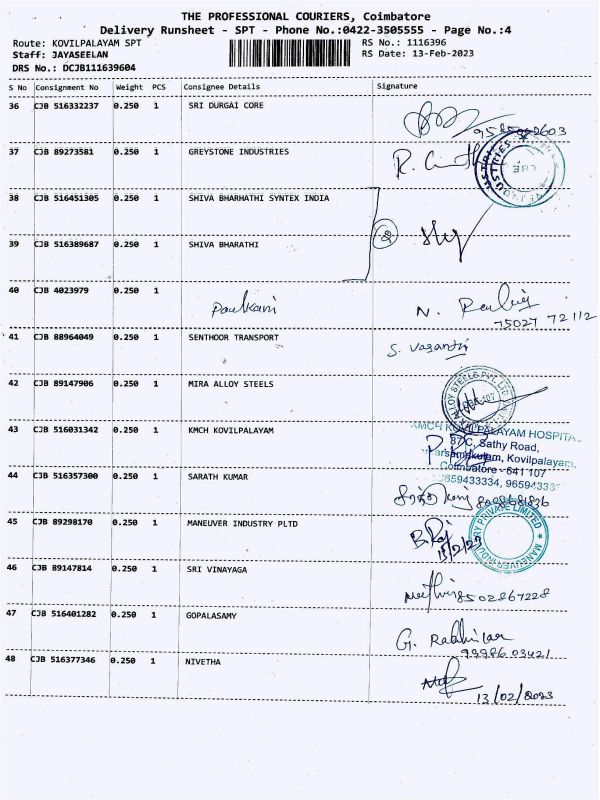 THE PROFESSIONAL COURIERS, Coimbatore
Delivery Runsheet - SPT - Phone No.:0422-3505555 - Page No.:4
Route: KOVILPALAYAM SPT
RS No.: 1116396
Staff: JAYASEELAN
RS Date: 13-Feb-2023
DRS No.: DCJB111639604
S No Consignment No Weight PCS Consignee Details Signature
36 CJB 516332237 0.250 1 SRI DURGAI CORE
37 CJB 89273581 0.250 1 GREYSTONE INDUSTRIES
38 CJB 516451305 0.250 1 SHIVA BHARHATHI SYNTEX INDIA
39 CJB 516389687 0.250 1 SHIVA BHARATHI
40 CJB 4023979 0.250 1
75027 72112
41 CJB 88964049 0.250 1 SENTHOOR TRANSPORT
S. Vasanthi
42 CJB 89147906 0.250 1 MIRA ALLOY STEELS
43 CJB 516031342 0.250 1 KMCH KOVILPALAYAM
KMCH KOVILPALAYAM HOSPITA
87/C, Sathy Road,
Kovilpalayam,
Coimbatore - 641 107
9659433334, 965943333
44 CJB 516357300 0.250 1 SARATH KUMAR
45 CJB 89298170 0.250 1 MANEUVER INDUSTRY PLTD
B. Raj
13/2/23
MANEUVER INDUSTRY PRIVATE LIMITED
46 CJB 89147814 0.250 1 SRI VINAYAGA
8502867228
47 CJB 516401282 0.250 1 GOPALASAMY
G.
99986 03421
48 CJB 516377346 0.250 1 NIVETHA
13/02/2023